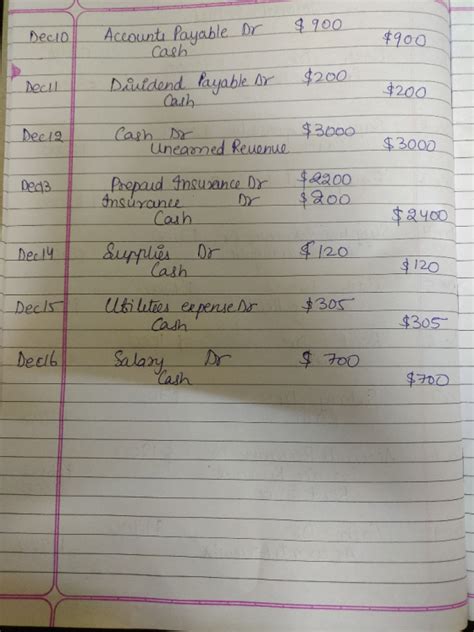 Dec10 Accounts Payable Dr $900
Cash $900
Dec11 Dividend Payable Dr $200
Cash $200
Dec12 Cash Dr $3000
Unearned Revenue $3000
Dec13 Prepaid Insurance Dr $2200
Insurance Dr $200
Cash $2400
Dec14 Supplies Dr $120
Cash $120
Dec15 Utilities expense Dr $305
Cash $305
Dec16 Salary Dr $700
Cash $700